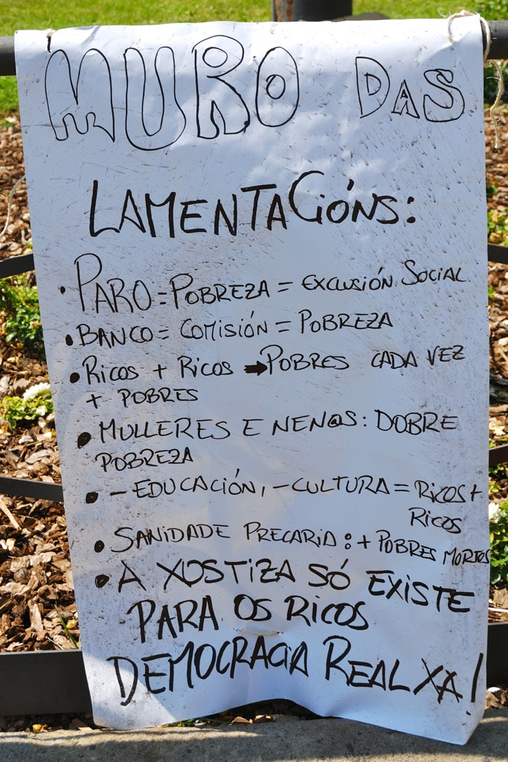 MURO DAS
LAMENTACIÓNS:
• PARO = POBREZA = EXCLUSIÓN SOCIAL
• BANCO = COMISIÓN = POBREZA
• RICOS + RICOS ➡ POBRES CADA VEZ
+ POBRES
• MULLERES E NEN@S: DOBRE
POBREZA
• - EDUCACIÓN, - CULTURA = RICOS +
RICOS
• SANIDADE PRECARIA: + POBRES MORTOS
• A XUSTIZA SÓ EXISTE
PARA OS RICOS
DEMOCRACIA REAL XA!